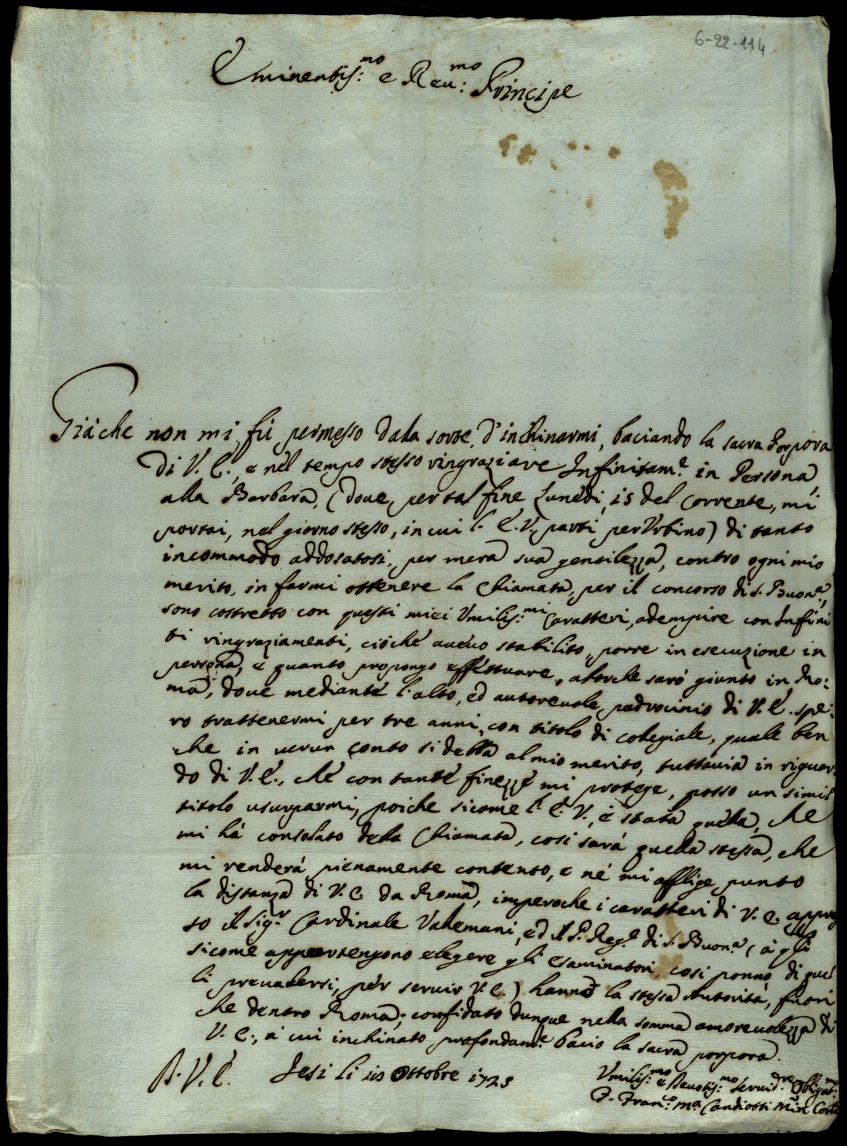 6-22-114
Eminentis:mo e Reu:mo Principe
Giàche non mi fù permesso dala sorte, d'inchinarmi, baciando la sacra Porpora
di V.E., e nel tempo stesso ringraziare Infinitam.e in Persona
alla Barbara, (doue, per tal fine Lunedi, 15 del corrente, mi
portai, nel giorno stesso, in cui l'E.V. parti per Vrbino) di tanto
incommodo addosatosi, per mera sua gentilezza, contro ogni mio
merito, in farmi ottenere la Chiamata, per il concorso di S. Buon.a,
sono costretto con questi miei Vmilis:mi Caratteri, adempire con Infini
ti ringraziamenti, ciòche aueuo stabilito, porre in esecuzione in
persona, e quanto propongo effettuare, alorche sarò giunto in Ro:
ma, doue mediante l'alto, ed autoreuole padrocinio di V.E. spe:
ro trattenermi per tre anni, con titolo di colegiale, quale ben
che in uerun conto si debba al mio merito, tuttauia in riguar
do di V.E., che con tante finezze mi protege, posso un simil
titolo usurparmi, poiche sicome l'E.V. è stata quella, che
mi hà consolato della Chiamata, così sarà quella stessa, che
mi renderà pienamente contento, e nè mi afflige punto
la distanza di V.E. da Roma, imperoche i caratteri di V.E. appres
so il Sig.r Cardinale Vallemani, ed il P. Reg.e di S. Buon.a (à gli
sicome appartengono elegere gli esaminatori, così ponno di que
li preualersi, per seruir V.E.) hanno la stessa Autorità, fuori
che dentro Roma; confidato dunque nella somma amoreuolezza di
V.E., à cui inchinato profondam.e bacio la sacra porpora.
D.V.E. Jesi li Ottobre 1725
Vmilis:mo e Deuotis:mo Seruid.re Obligat:mo
F. Fran.co M.a Candiotti Min. Con.le